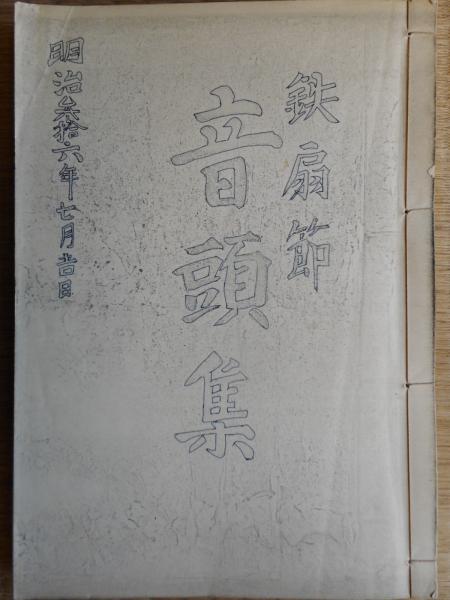 鉄扇節
音頭集
明治叁拾六年七月吉日